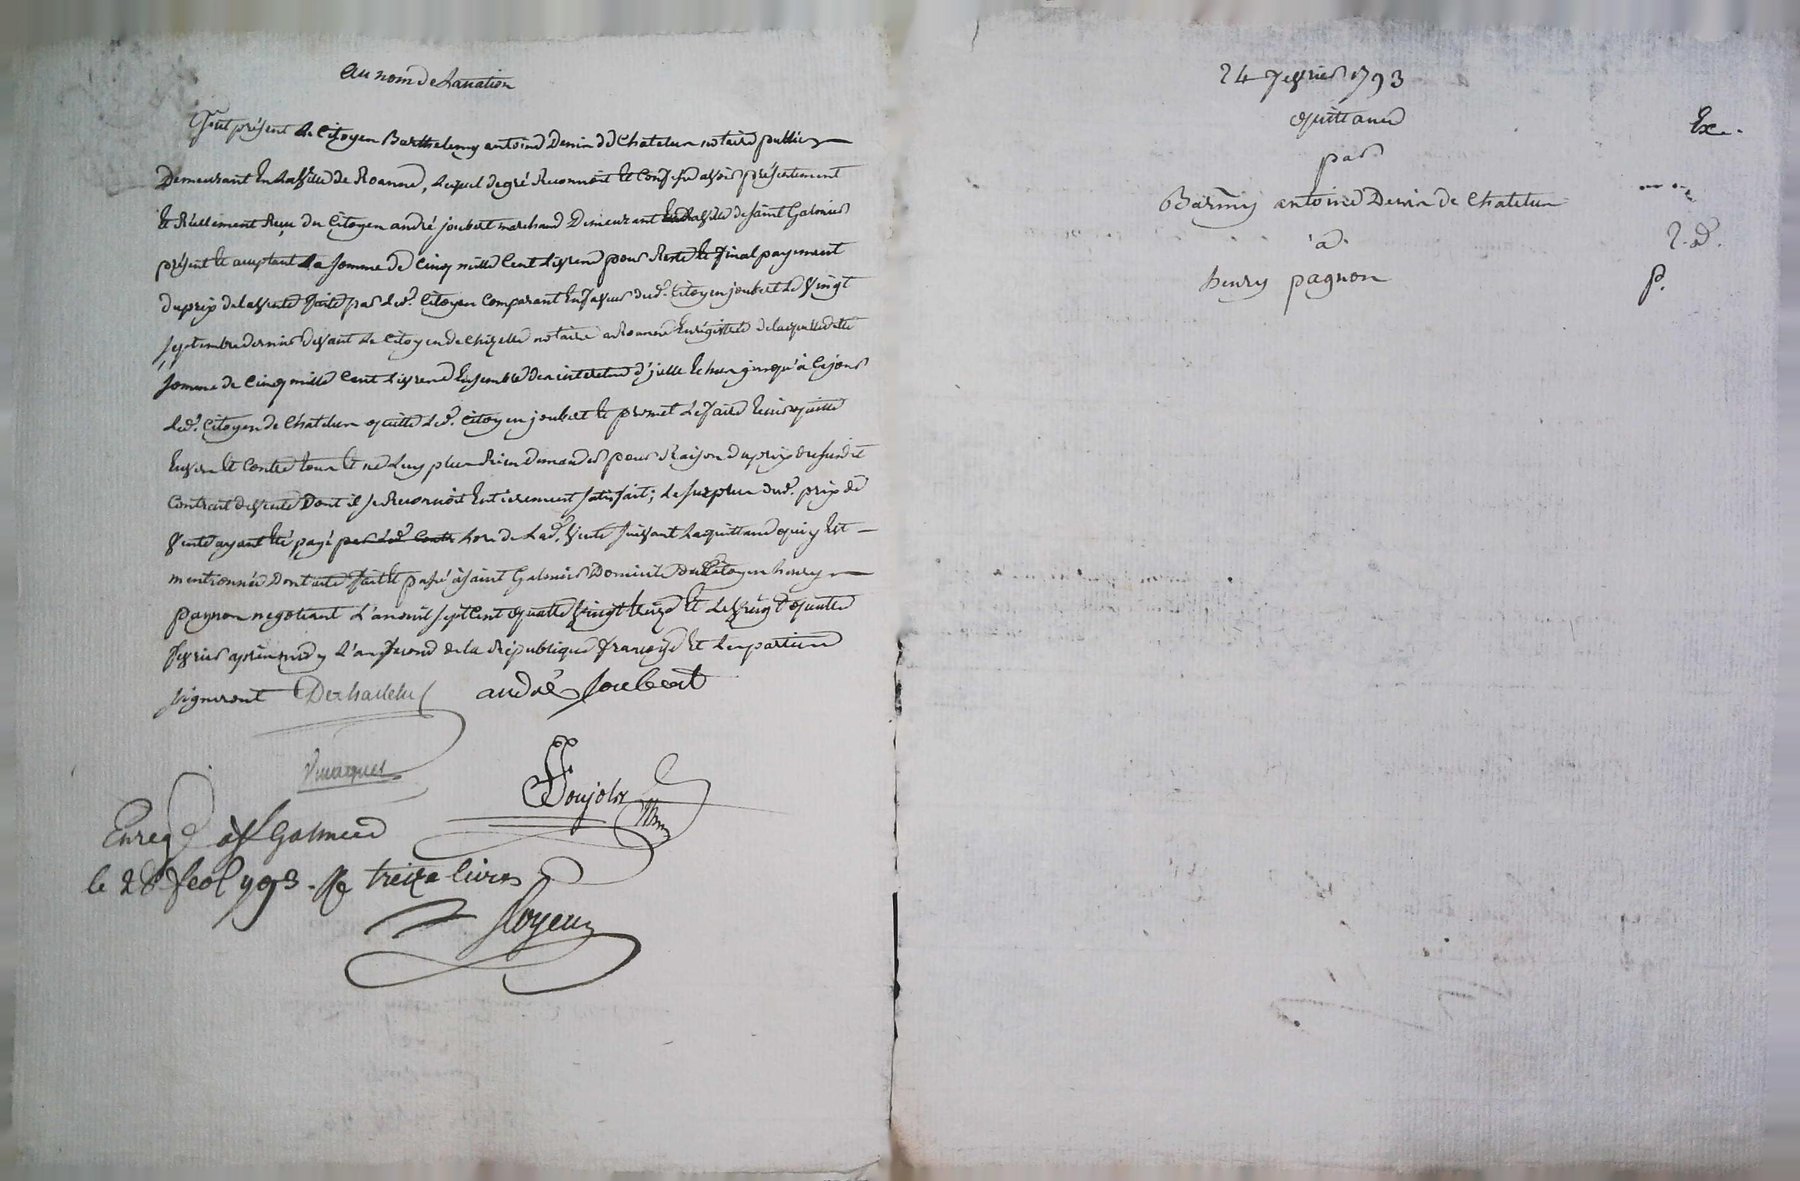 au nom de la nation
fut présent le Citoyen Barthelemy antoine Denin de Chatelus notaire public
Demeurant En la Ville de Roanne, Lequel de gré Reconnoit Et Confesse avoir présentement
Et Réellement Reçu du Citoyen andré joubert marchand Demeurant En la Ville de saint Galmier
présent Et acceptant La somme de Cinq mille Cent Livres pour Reste Et final payement
du prix de la Vente faite par led. Citoyen Comparant En faveur dud. Citoyen joubert Le Vingt
septembre dernier devant Le Citoyen dechizelle notaire a Roanne Enregistrée de laquelle dite
somme de Cinq mille Cent Livres Ensemble des interets d'jcelle Echus jusqu'à Ce jour
Led. Citoyen de Chatelus quitte Led. Citoyen joubert Et promet Le faire tenir quitte
Envers Et Contre tous Et ne Luy plus Rien demander pour Raison du prix du susdit
Contrat de Vente Dont il se Reconnoit Entierement satisfait; Le surplus dud. prix de
Vente ayant Eté payé par Led. Contr Lors de Lad. Vente suivant La quittance qui y Est
mentionnée Dont acte fait Et passé à saint Galmier Domicile du Citoyen henry
pagnon negotiant L'an mil sept Cent quatre Vingt treize Et Le Vingt quatre
fevrier après midy L'an second de la République françoise Et Les parties
signeront Dechatelus andré Joubert
Poujols
Enreg. à St Galmier
le 28 feb. 1793. R. treize livres
24 fevrier 1793
quittance
par
Barmy antoine Denin de Chatelus
à
henry pagnon
Ex.
2. d.
p.